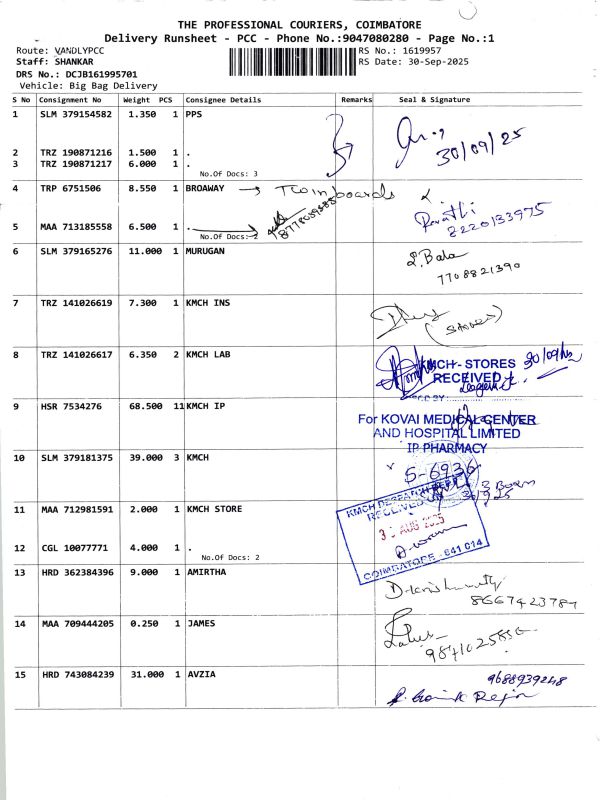 THE PROFESSIONAL COURIERS, COIMBATORE
Delivery Runsheet - PCC - Phone No.:9047080280 - Page No.:1
Route: VANDLYPCC RS No.: 1619957
Staff: SHANKAR RS Date: 30-Sep-2025
DRS No.: DCJB161995701
Vehicle: Big Bag Delivery
S No Consignment No Weight PCS Consignee Details Remarks Seal & Signature
1 SLM 379154582 1.350 1 PPS
30/09/25
2 TRZ 190871216 1.500 1 .
3 TRZ 190871217 6.000 1 .
No.Of Docs: 3
4 TRP 6751506 8.550 1 BROAWAY
8220133975
5 MAA 713185558 6.500 1 .
No.Of Docs: 2
6 SLM 379165276 11.000 1 MURUGAN
S. Bala
7708821390
7 TRZ 141026619 7.300 1 KMCH INS
(stores)
8 TRZ 141026617 6.350 2 KMCH LAB
KMCH - STORES
RECEIVED
9 HSR 7534276 68.500 11 KMCH IP
For KOVAI MEDICAL CENTER
AND HOSPITAL LIMITED
IP PHARMACY
10 SLM 379181375 39.000 3 KMCH
S-6936
11 MAA 712981591 2.000 1 KMCH STORE
KMCH DESPATCH DEPT
RECEIVED ON
3 AUG 2025
COIMBATORE - 641 014
12 CGL 10077771 4.000 1 .
No.Of Docs: 2
13 HRD 362384396 9.000 1 AMIRTHA
8667423787
14 MAA 709444205 0.250 1 JAMES
15 HRD 743084239 31.000 1 AVZIA
9688939248